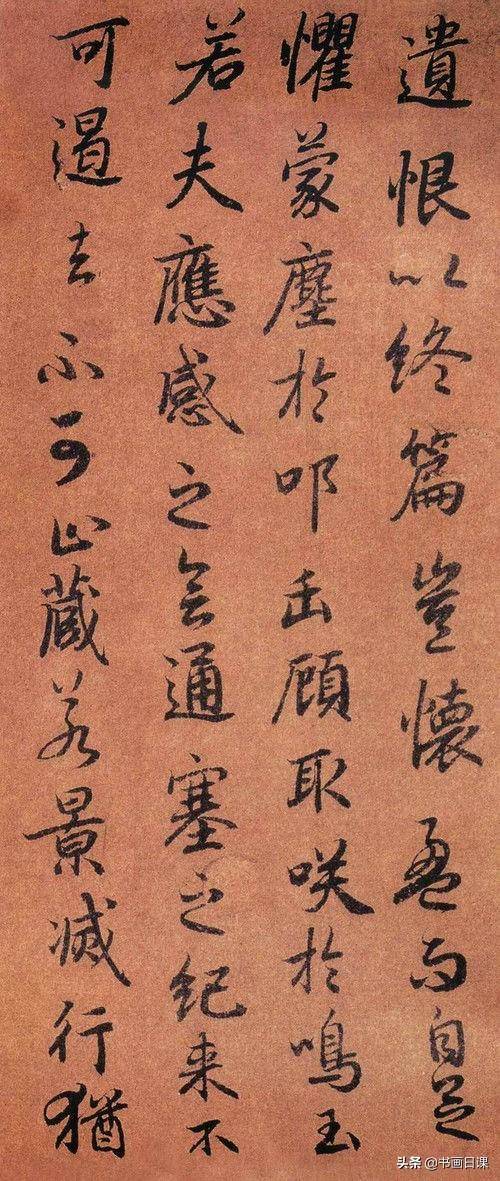 遺恨以終篇豈懷盈而自足
懼蒙塵於叩缶顧取咲於鳴玉
若夫應感之會通塞之紀来不
可遏去不可止藏若景滅行猶
头条 @书画日课